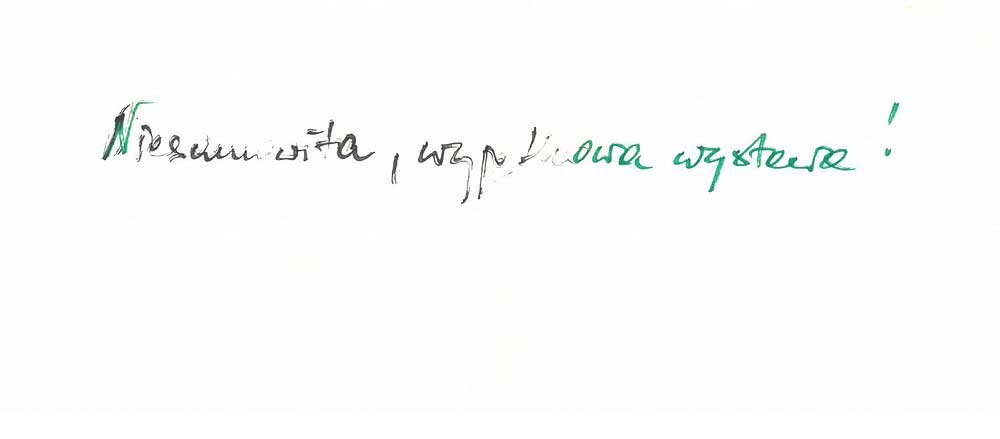 Niesamowita, wyjątkowa wystawa!